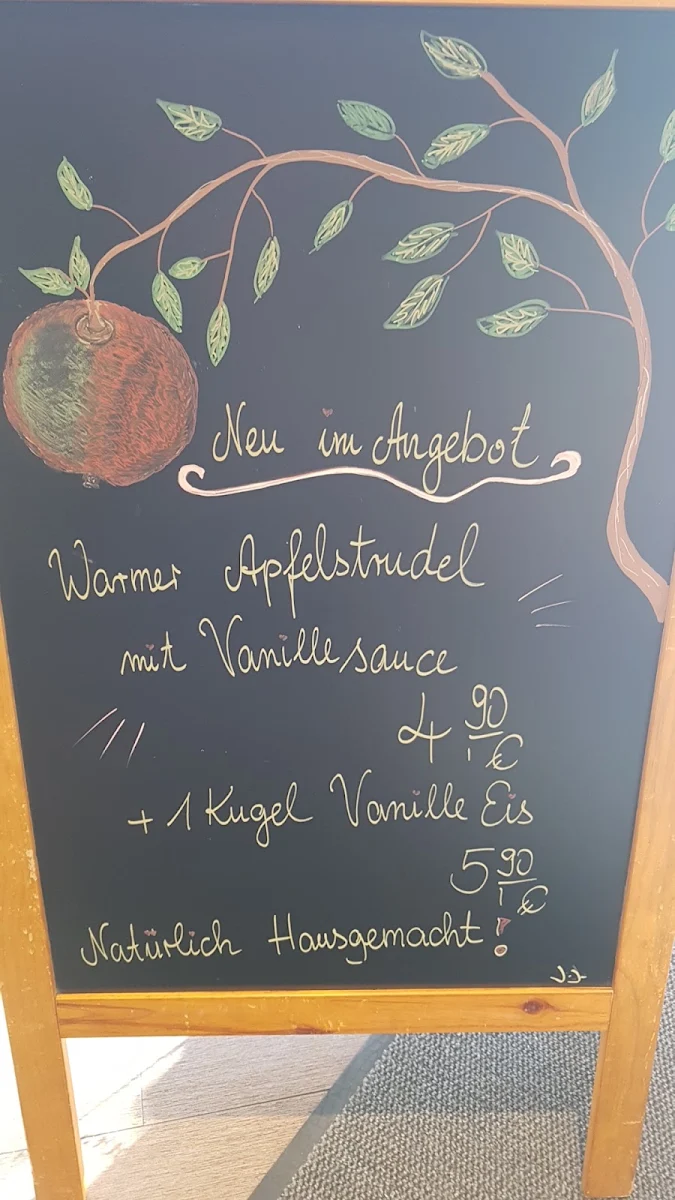 Neu im Angebot
Warmer Apfelstrudel
mit Vanillesauce
4,90 €
+ 1 Kugel Vanille Eis
5,90 €
Natürlich Hausgemacht!